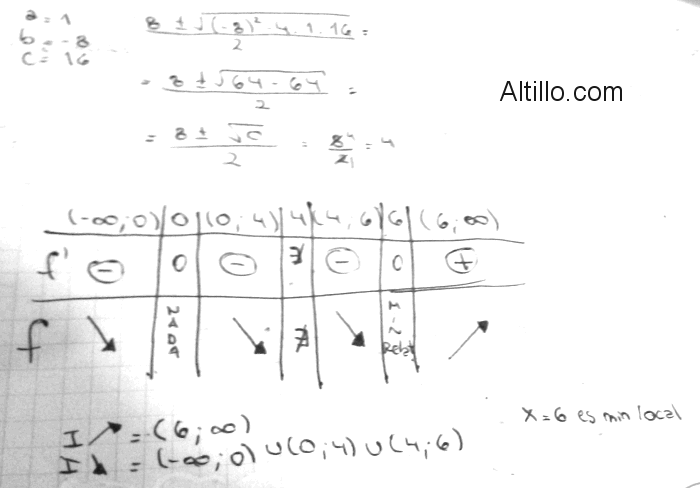 a = 1
b = -8
c = 16
8 ± √(-8)² - 4 . 1 . 16 / 2 =
= 8 ± √64 - 64 / 2 =
= 8 ± √0 / 2 = 8⁴ / 2₁ = 4
Altillo.com
(-∞; 0) | 0 | (0; 4) | 4 | (4; 6) | 6 | (6; ∞)
f' | ⊖ | 0 | ⊖ | ∄ | ⊖ | 0 | ⊕
f | ↘ | NADA | ↘ | ∄ | ↘ | MIN Relat. | ↗
x = 6 es min local
I ↗ = (6; ∞)
I ↘ = (-∞; 0) ∪ (0; 4) ∪ (4; 6)